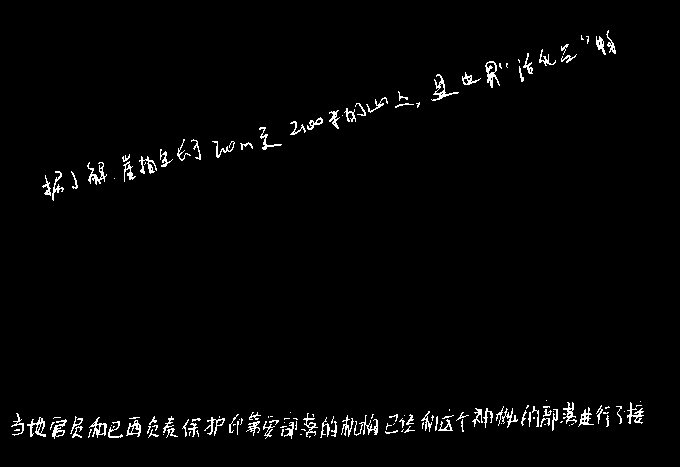 据了解,崖柏生长于700m至2100米的山上,是世界“活化石”畅
当地官员和巴西负责保护印第安部落的机构已经和这个神秘的部落进行了接